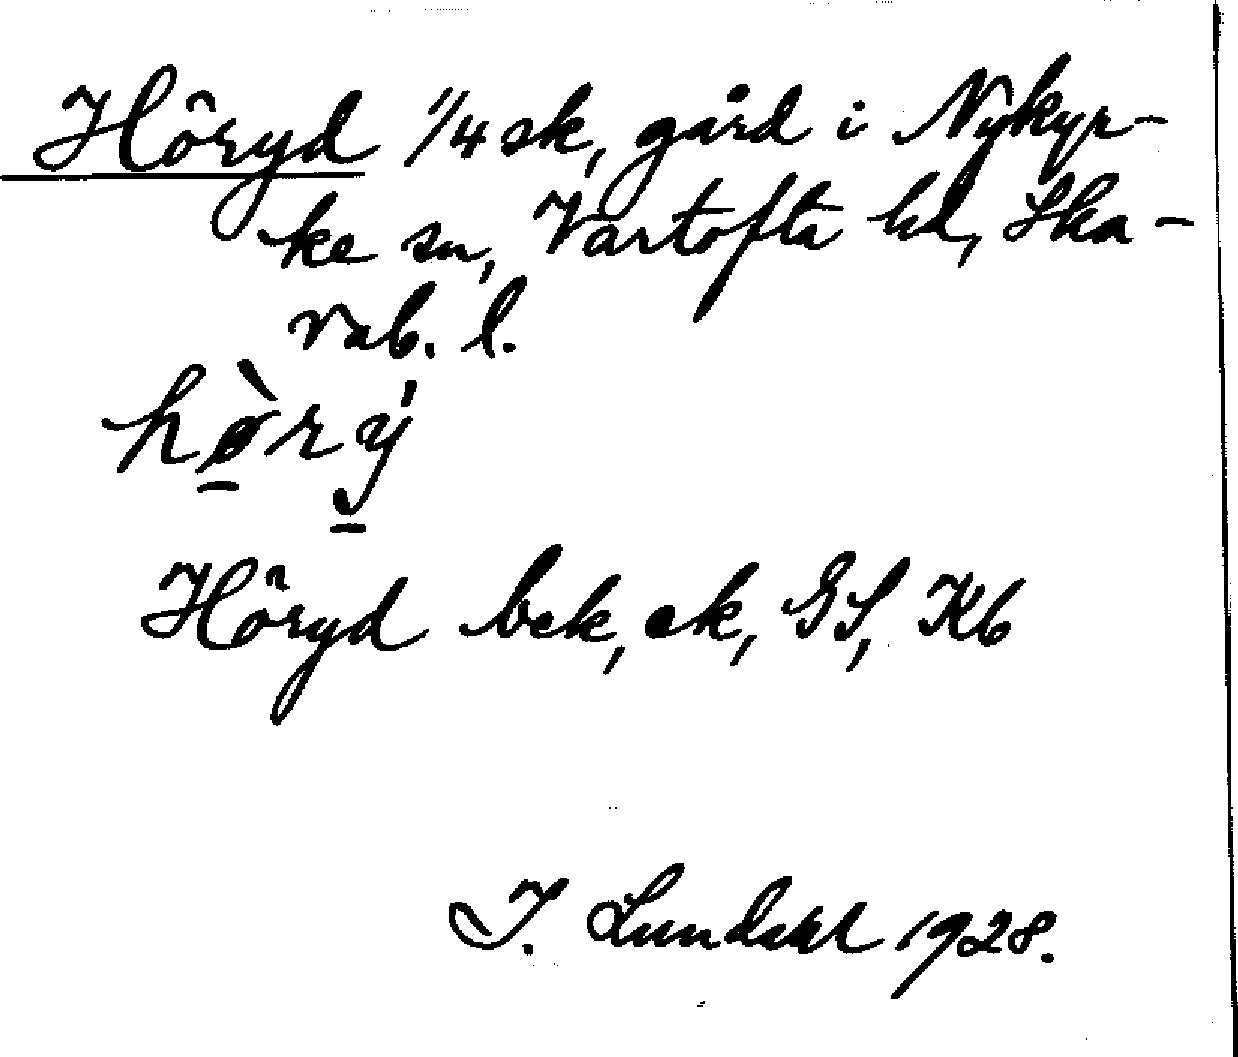 Höryd 1/4 sk, gård i Nykyr-
ke sn, Vartofta hd, Ska-
rab. l.
hø̀rý
Höryd bek, ek, GS, Kb
I. Lundahl 1928.